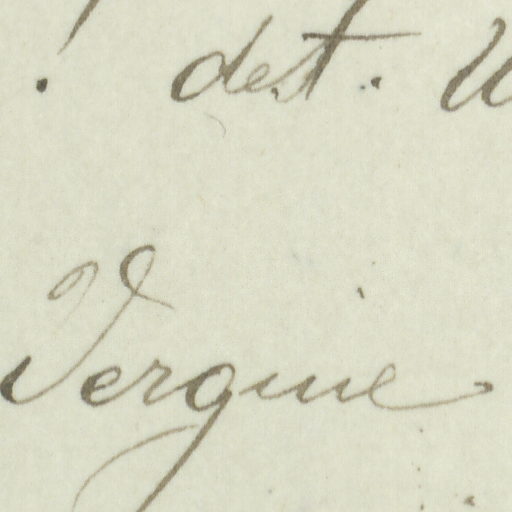 . det.
Vergine